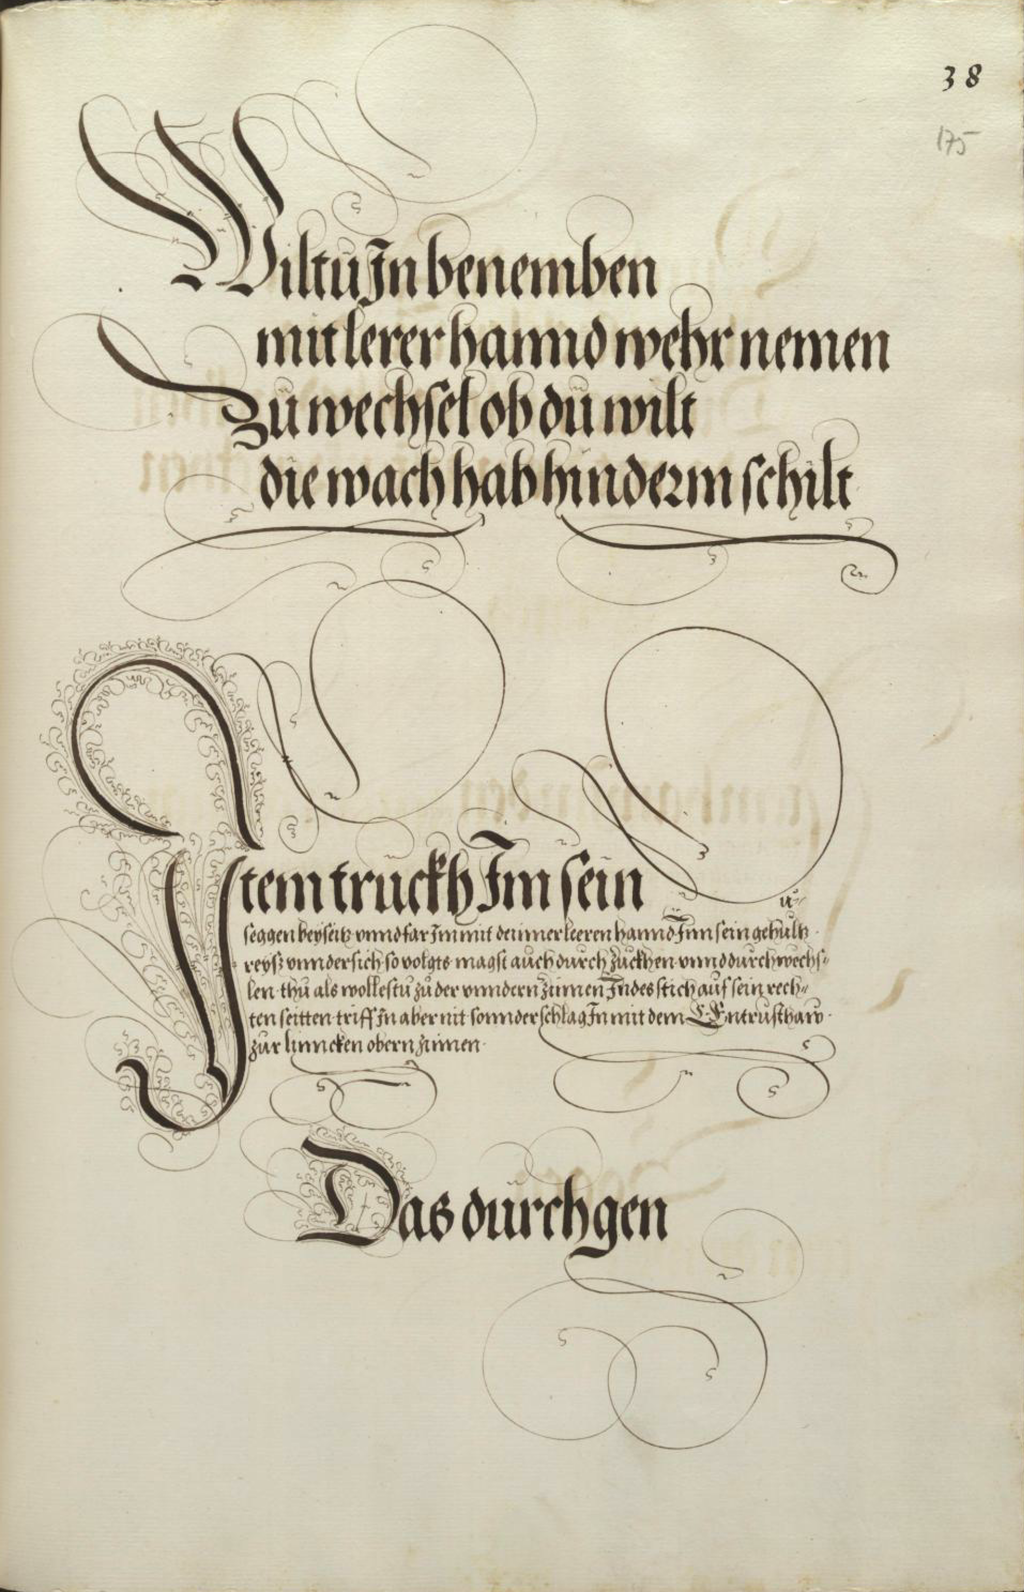 38
175
Wiltu In benemben
mit lerer hannd wehr nemen
Zu wechsel ob du wilt
die wach hab hinderm schilt
Item truckh Im sein
seggen beyseitz vnnd far Im mit deinner leeren hannd Inn sein gehultz
reyß vnndersich so volgts magst auch durch zuckhen vnnd durchwechs-
len thu als wollestu zu der vnndern zinnen Indes stich auf sein rech-
ten seitten triff In aber nit sonnder schlag In mit dem E Entrusthaw
zur linncken obern zinnen
Das durchgen